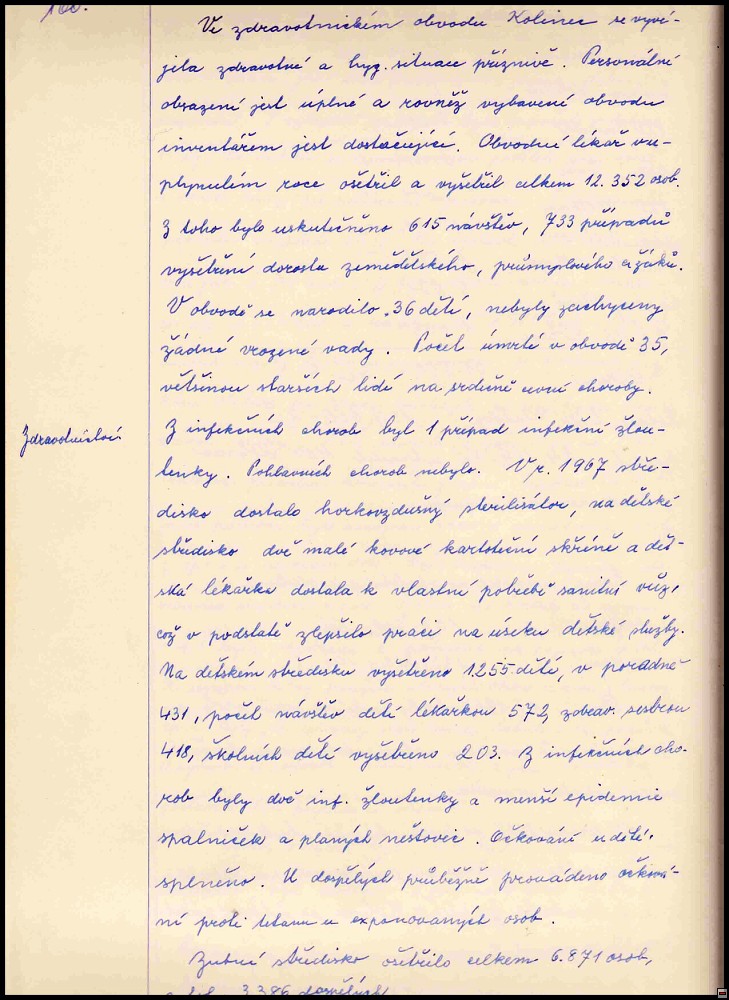 160.
Ve zdravotnickém obvodu Kolinec se vyví-
jela zdravotně a hyg. situace příznivě. Personální
obsazení jest úplné a rovněž vybavení obvodu
inventářem jest dostačující. Obvodní lékař v u-
plynulém roce ošetřil a vyšetřil celkem 12.352 osob.
Z toho bylo uskutečněno 615 návštěv, 733 případů
vyšetření dorostu zemědělského, průmyslového a žáků.
V obvodě se narodilo 36 dětí, nebyly zachyceny
žádné vrozené vady. Počet úmrtí v obvodě 35,
většinou starších lidí na srdečně cevní choroby.
Zdravotnictví
Z infekčních chorob byl 1 případ infekční žlou-
tenky. Pohlavních chorob nebylo. V r. 1967 stře-
disko dostalo horkovzdušný sterilisátor, na dětské
středisko dvě malé kovové kartoteční skříně a dět-
ská lékařka dostala k vlastní potřebě sanitní vůz,
což v podstatě zlepšilo práci na úseku dětské služby.
Na dětském středisku vyšetřeno 1255 dětí, v poradně
431, počet návštěv dětí lékařkou 572, zdrav. sestrou
418, školních dětí vyšetřeno 203. Z infekčních cho-
rob byly dvě inf. žloutenky a menší epidemie
spalniček a planých neštovic. Očkování u dětí
splněno. U dospělých průběžně prováděno očková-
ní proti tetanu u exponovaných osob.
Zubní středisko ošetřilo celkem 6.871 osob,
3386 dospělých